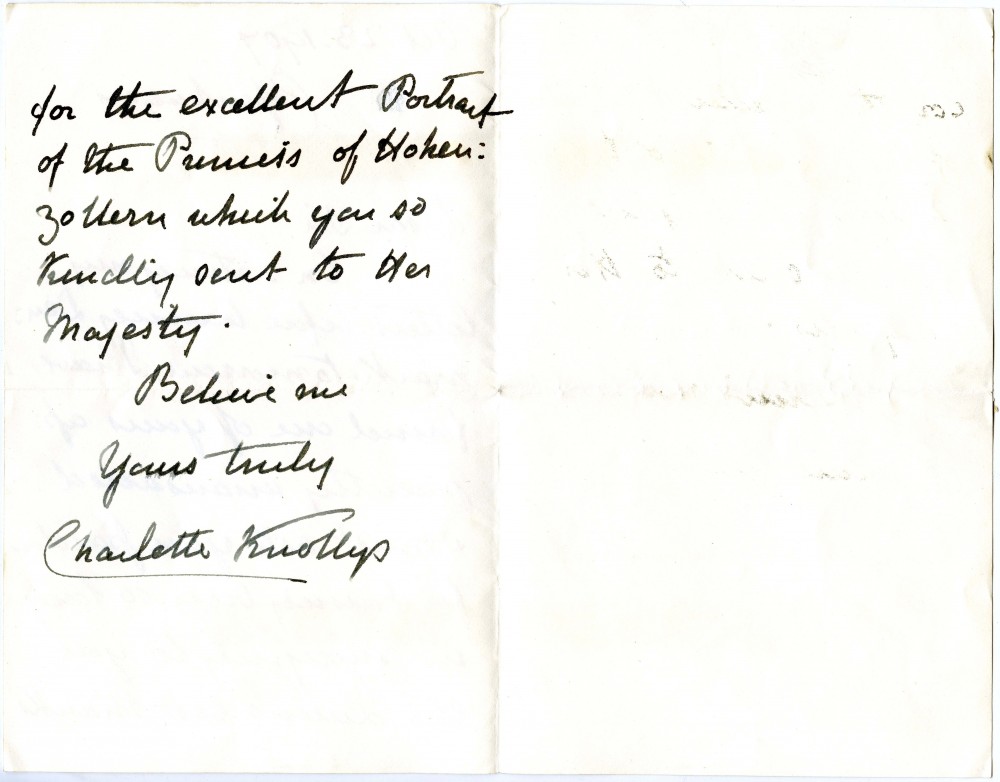 for the excellent Portrait
of the Princess of Hohen:
zollern which you so
kindly sent to Her
Majesty.
Believe me
Yours truly
Charlotte Knollys